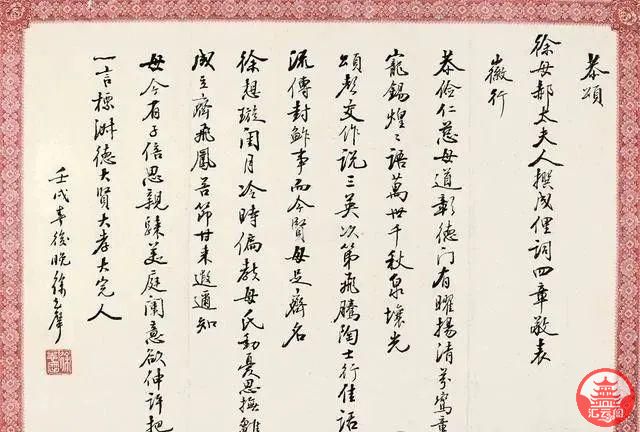 恭頌
徐母郝太夫人撰成俚詞四章敬表
徽行
恭儉仁慈母道彰德門有曜揚清芬鸞章
寵錫煌〻語萬世千秋泉壤光
頌聲交作說三英次第飛騰陶士行佳話
流傳封鮓事而今賢母足齊名
徐想璇閨月冷時偏教母氏動憂思撫雛
成立齊飛鳳苦節甘來遐邇知
母今有子倍思親騄美庭闌意欲伸許把
一言標淑德大賢大孝大完人
壬戌年後晚徐
汇云阁